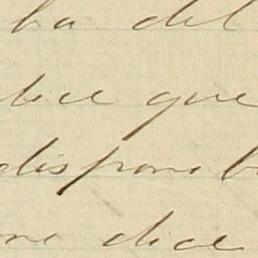 ba del
dice que
dispone b
me dice